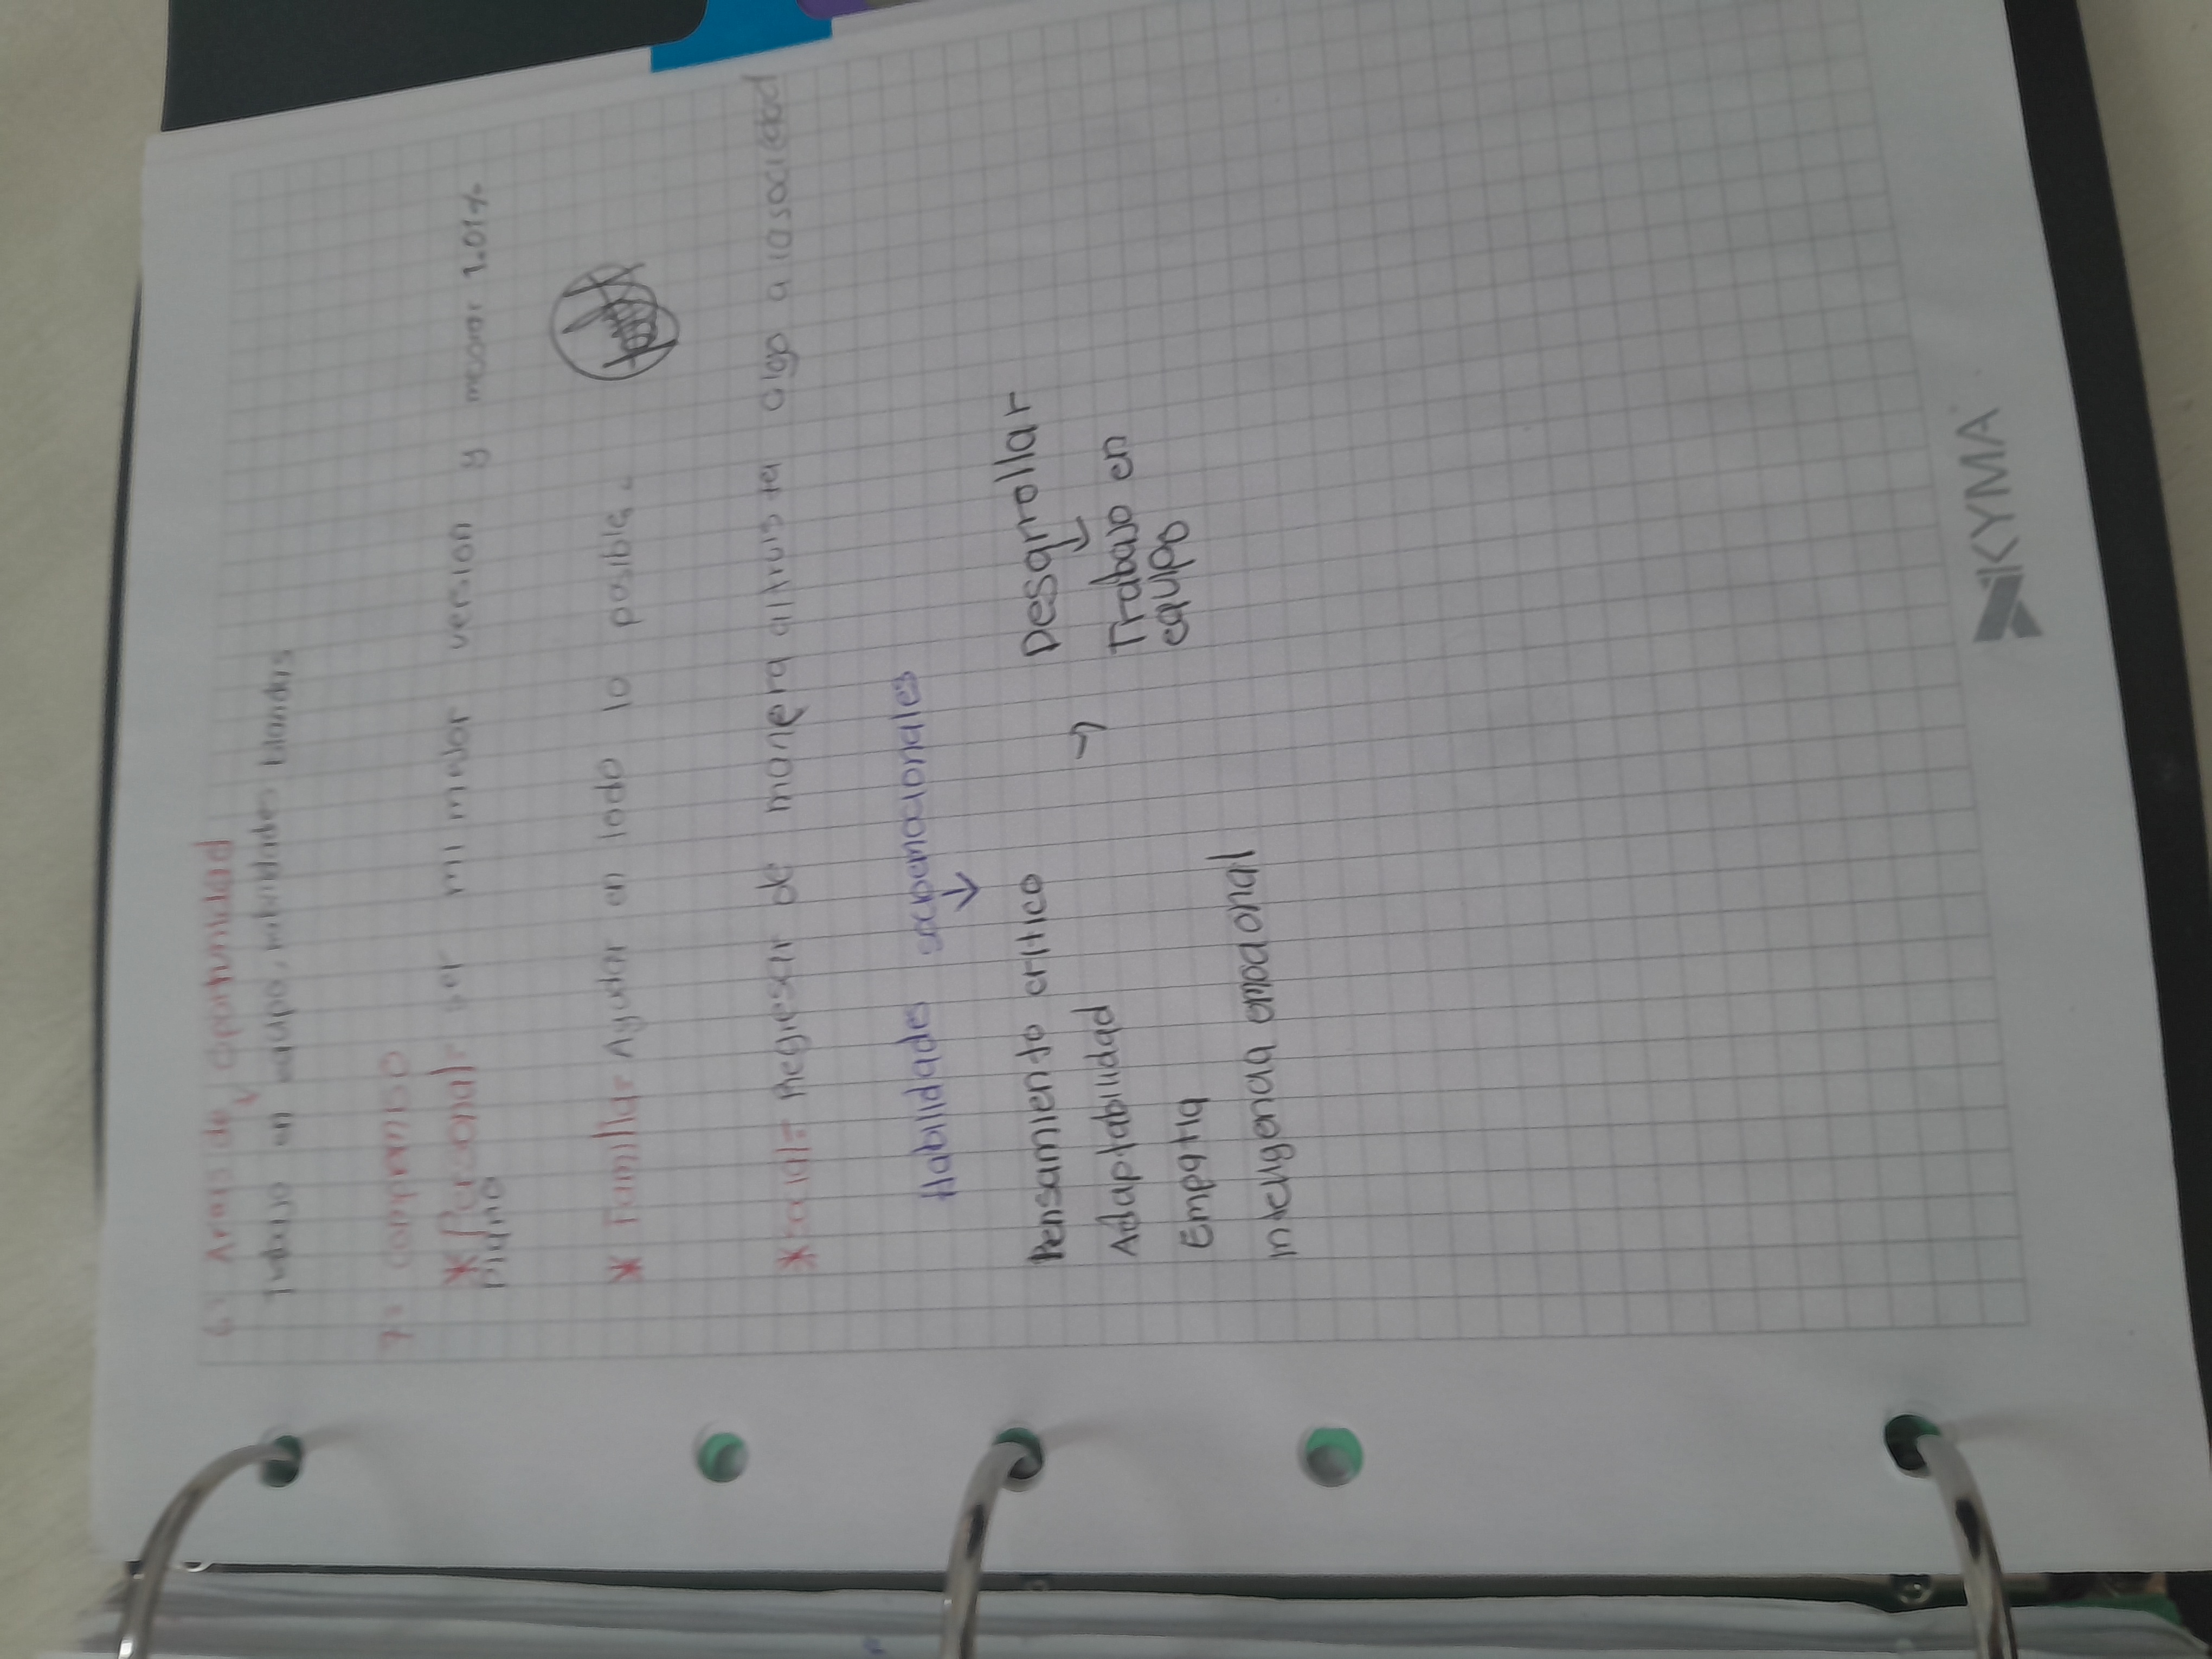 6.- Areas de oportunidad
Trabajo en equipo, habilidades blandas
7.- compromiso
* Personal= ser mi mejor version y mejorar 1.01%
Diario
* Familiar= Ayudar en todo lo posible.
* social= Regresar de manera altruista algo a la sociedad
Habilidades socioemocionales
Pensamiento critico → Desarrollar
Adaptabilidad Trabajo en
Empatia equipo
inteligencia emocional
KYMA